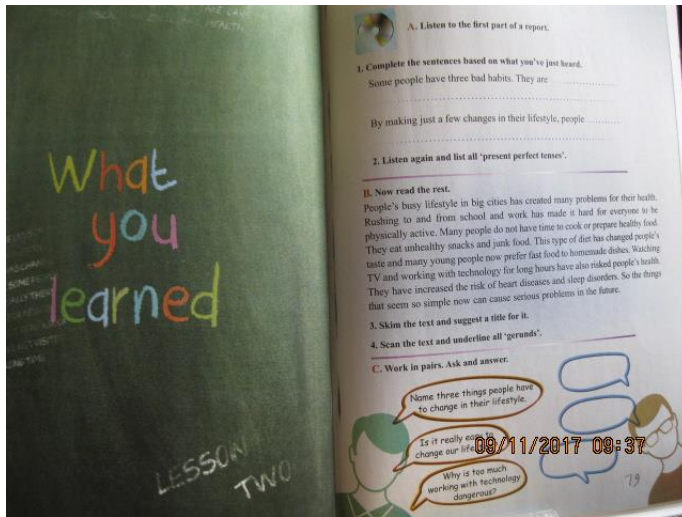 What
you
learned
LESSON
TWO
A. Listen to the first part of a report.
1. Complete the sentences based on what you've just heard.
Some people have three bad habits. They are ....................
By making just a few changes in their lifestyle, people ..........
2. Listen again and list all 'present perfect tenses'.
B. Now read the rest.
People's busy lifestyle in big cities has created many problems for their health.
Rushing to and from school and work has made it hard for everyone to be
physically active. Many people do not have time to cook or prepare healthy food.
They eat unhealthy snacks and junk food. This type of diet has changed people's
taste and many young people now prefer fast food to homemade dishes. Watching
TV and working with technology for long hours have also risked people's health.
They have increased the risk of heart diseases and sleep disorders. So the things
that seem so simple now can cause serious problems in the future.
3. Skim the text and suggest a title for it.
4. Scan the text and underline all 'gerunds'.
C. Work in pairs. Ask and answer.
Name three things people have
to change in their lifestyle.
Is it really easy to
change our
Why is too much
working with technology
dangerous?
09/11/2017 09:37
79